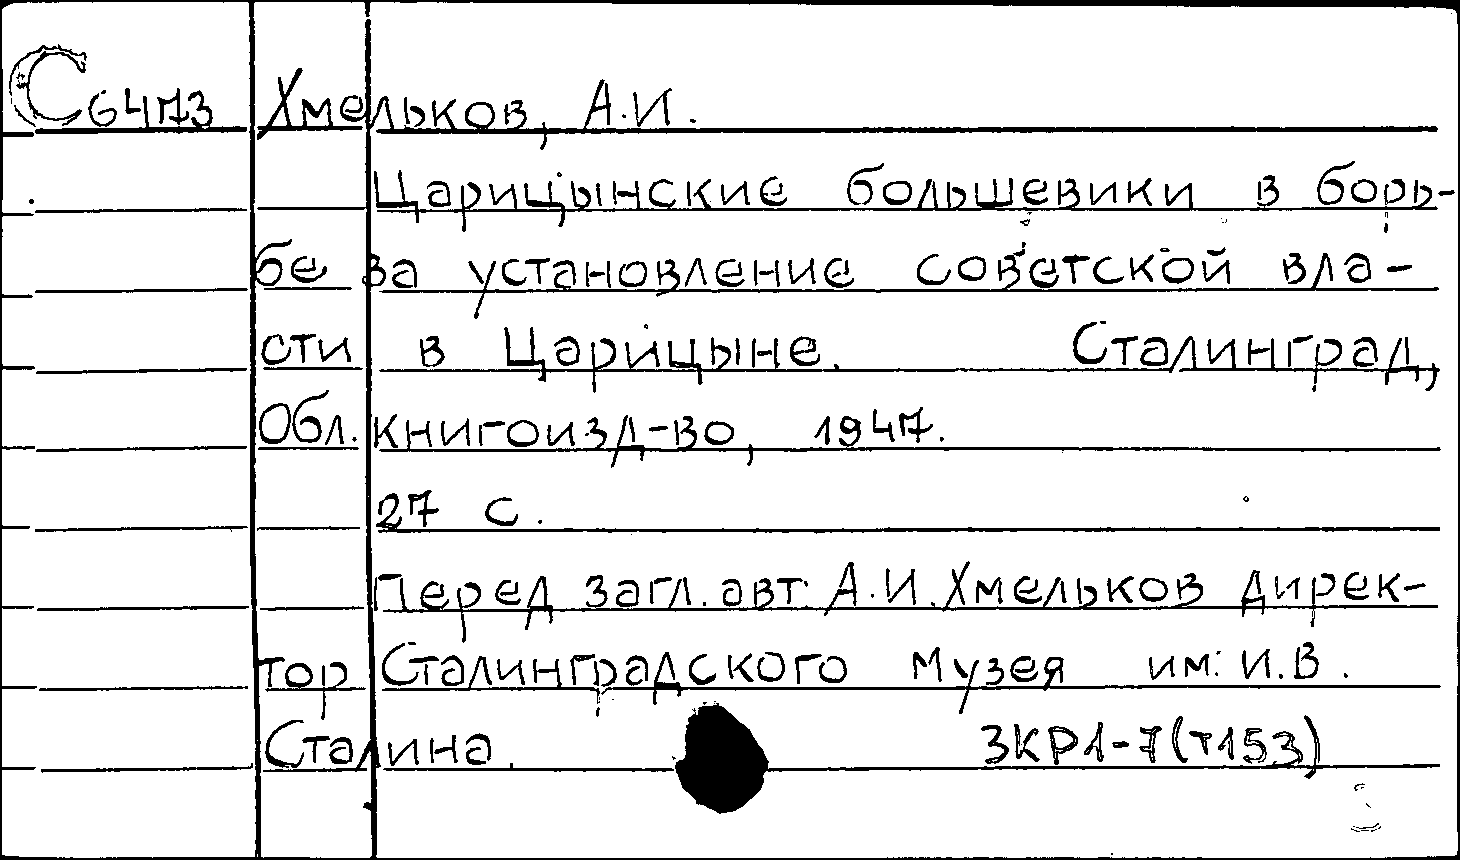 С6473 Хмельков, А.И.
Царицынские большевики в борь-
бе за установление советской вла-
сти в Царицыне. Сталинград,
Обл. книгоизд-во, 1947.
27 с.
Перед загл. авт: А.И. Хмельков дирек-
тор Сталинградского музея им. И.В.
Сталина. 3КР1-7(т153)